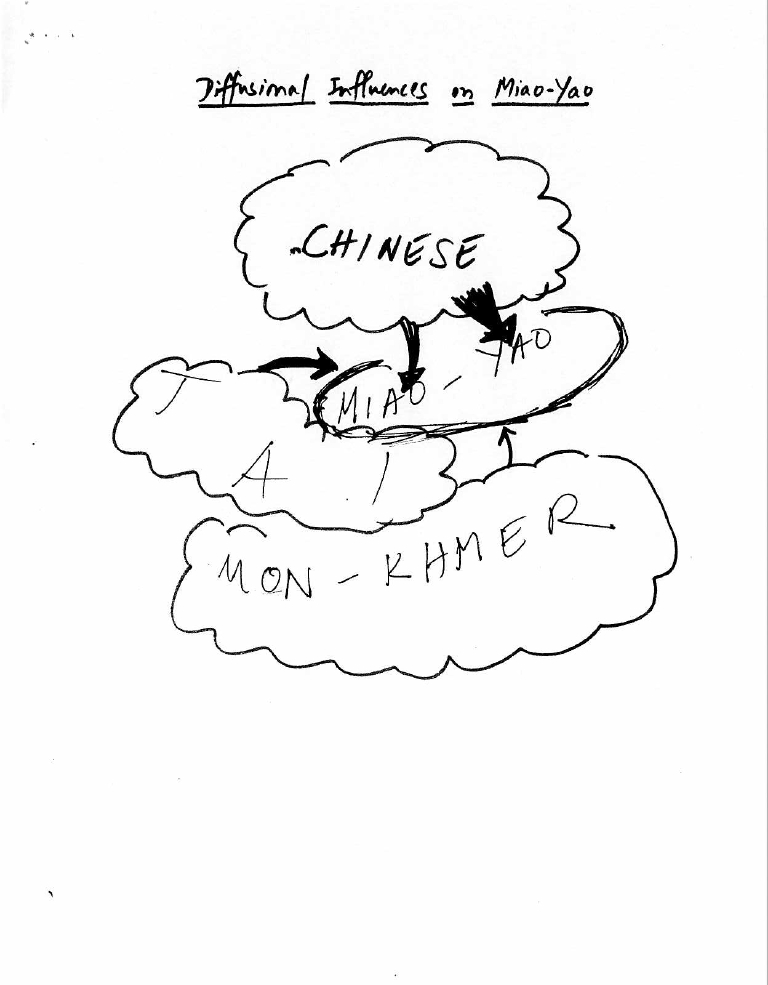 Diffusional Influences on Miao-Yao
CHINESE
MIAO - YAO
TAI
MON - KHMER